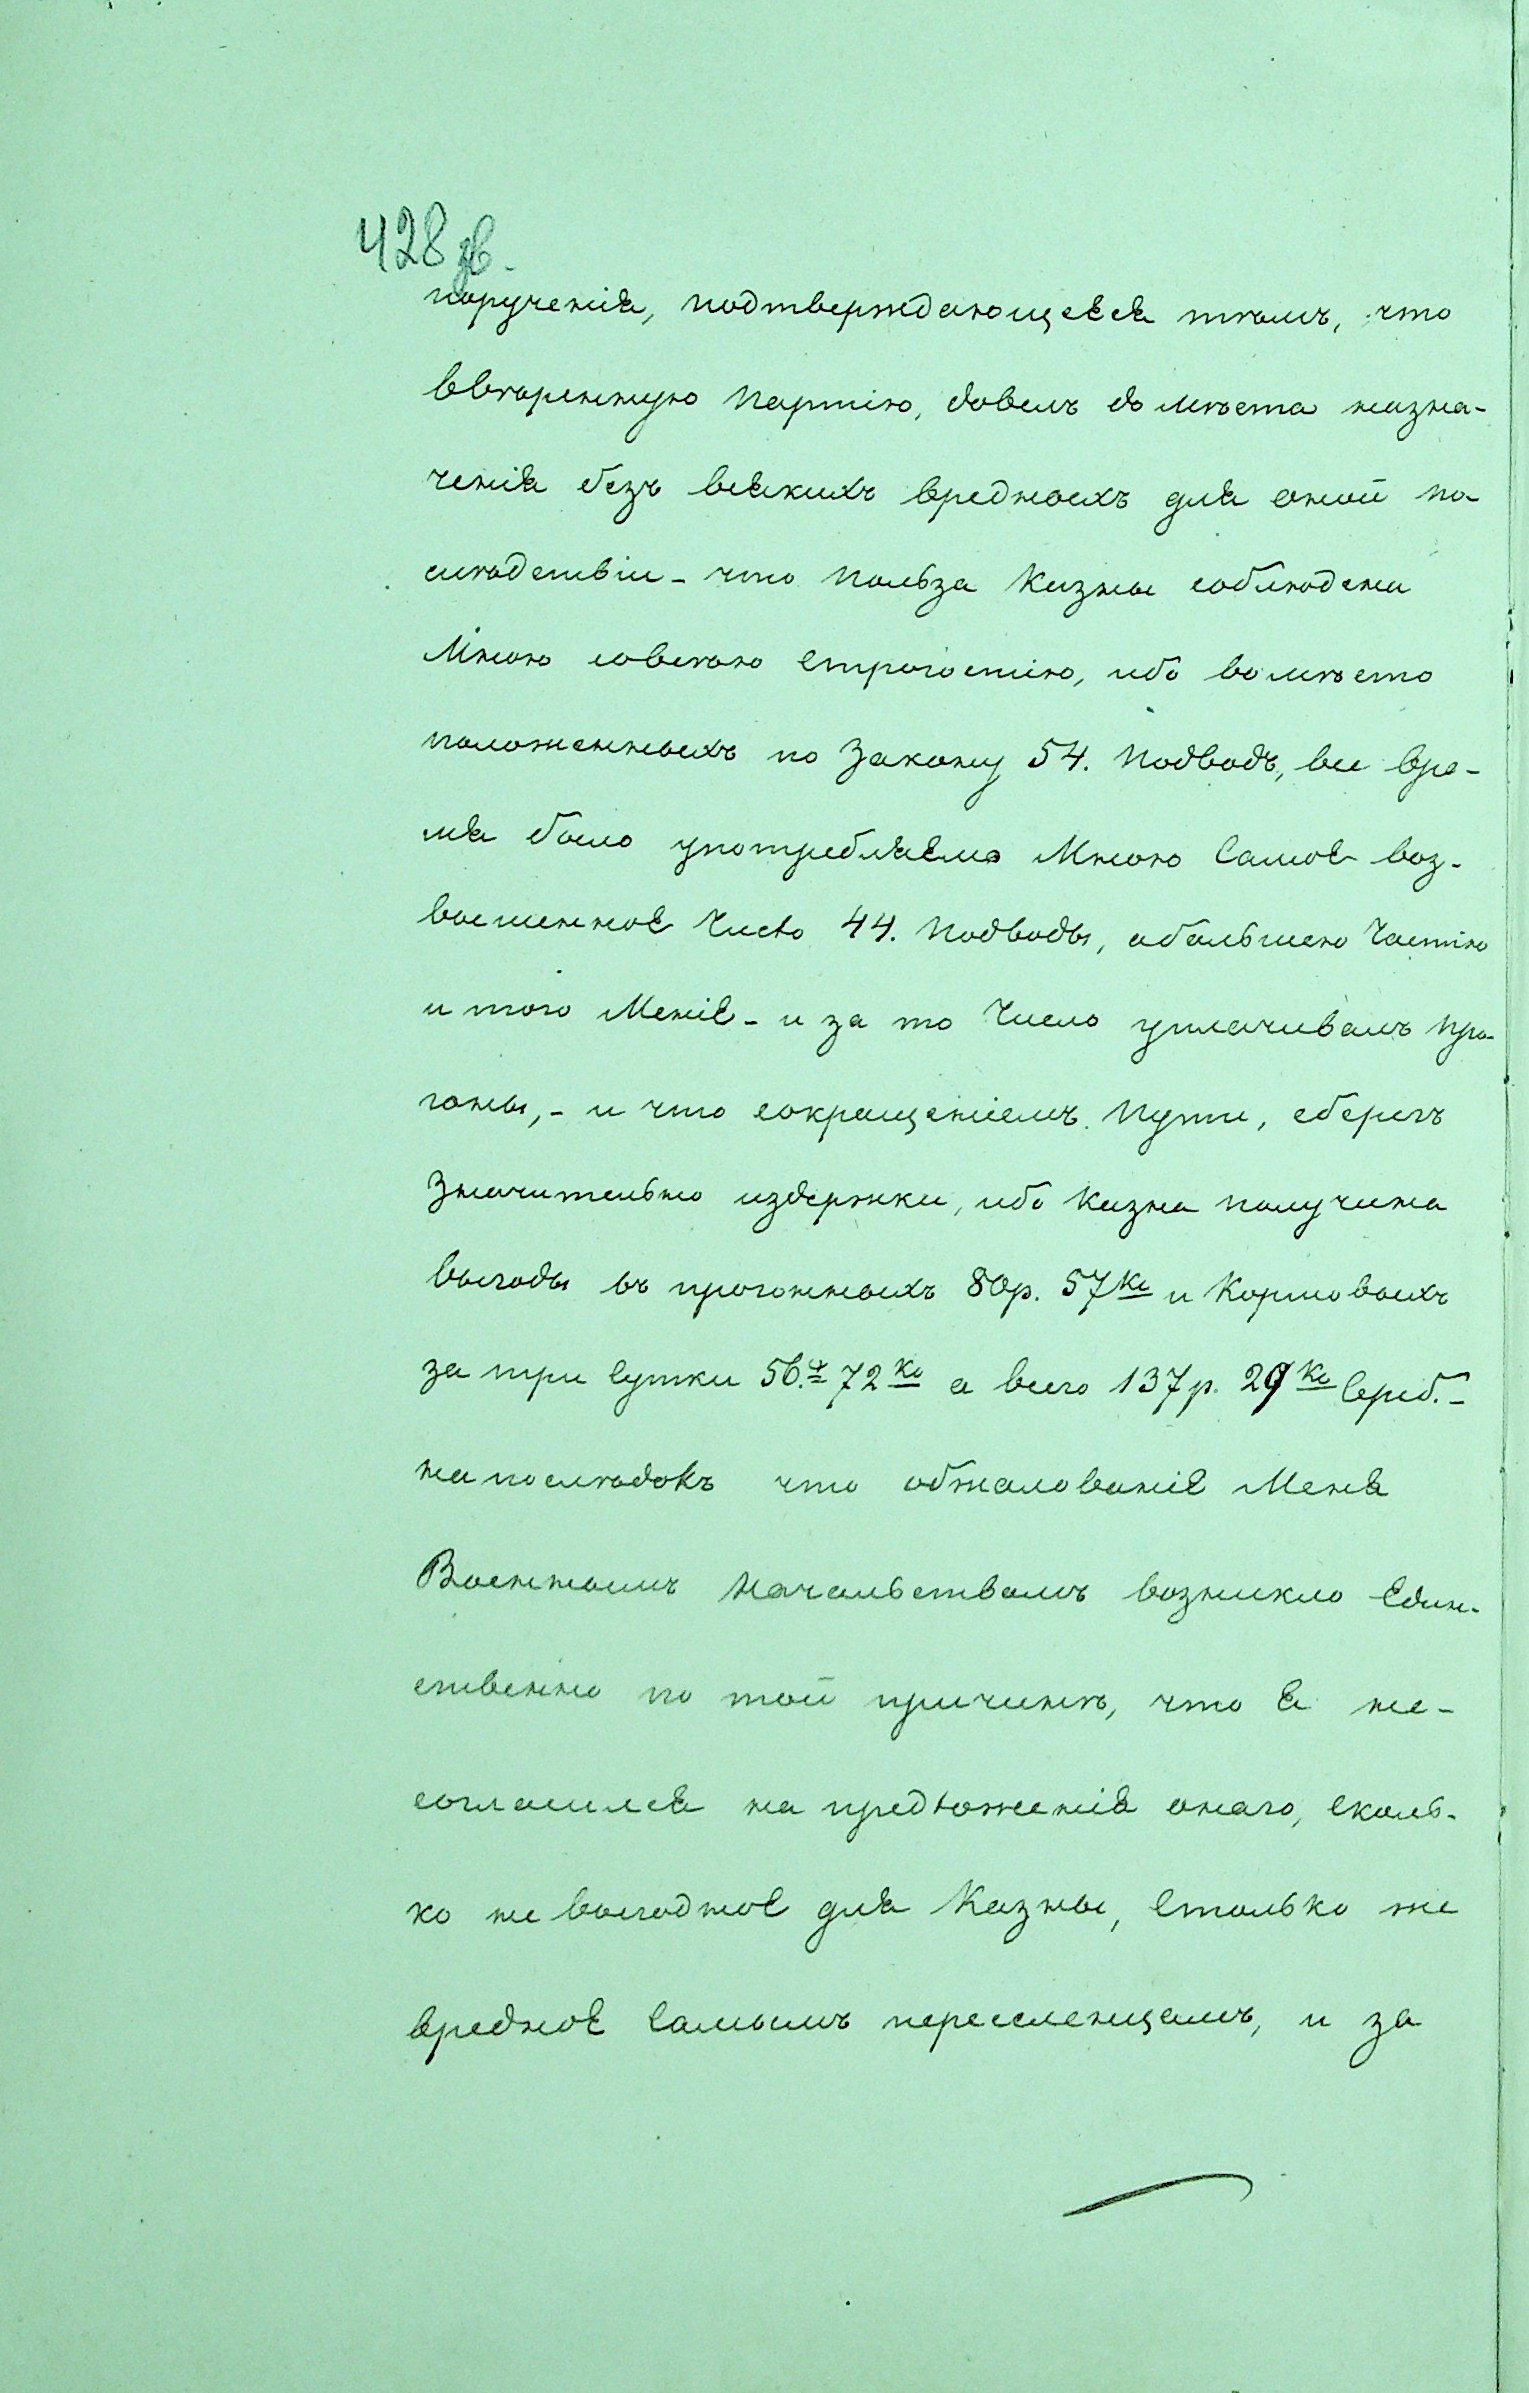 428 зв.
порученія, подтверждающееся тѣмъ, что
ввѣренную партію, довелъ до мѣста назна-
ченія безъ всякихъ вредныхъ для оной по-
слѣдствіи - что польза Казны соблюдена
Мною совсею строгостію, ибо вомѣсто
положенныхъ по Закону 54. подводъ, все вре-
мя было употребляемо Мною Самое воз-
вышенное Число 44. подводы, абольшею Частію
и того Меніе - и за то Число уплачивалъ про-
гоны, - и что сокращеніемъ пути, сберегъ
Значительно издержки, ибо Казна получила
выгоды въ прогонныхъ 80р. 57 ко и Кормовыхъ
за три Сутки 56.р 72 ко а всего 137р. 29 ко Сереб. -
напослѣдокъ что обжалованіе Меня
Военнымъ Начальствомъ возникло Един-
ственно по той причинѣ, что Я не-
согласился на предложенія онаго, Сколь-
ко не выгодное для Казны, Столько же
вредное Самымъ переселенцамъ, и за